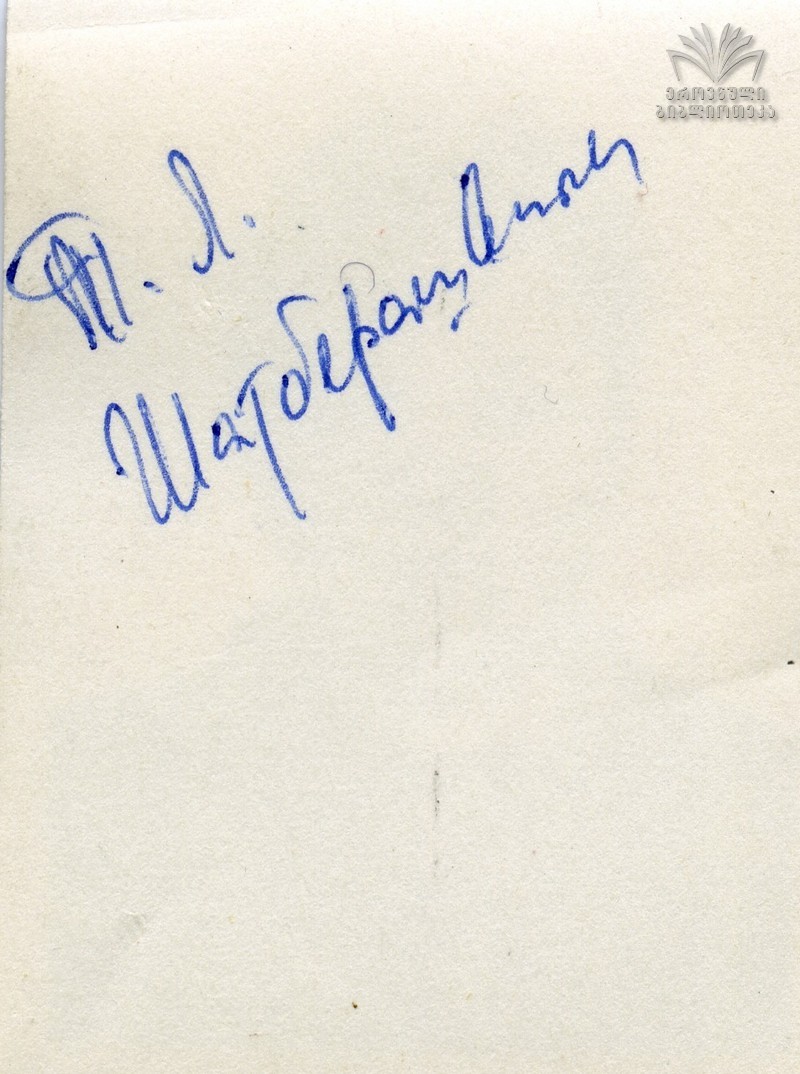 ეროვნული
ბიბლიოთეკა
Т. Л.
Шатберашвили